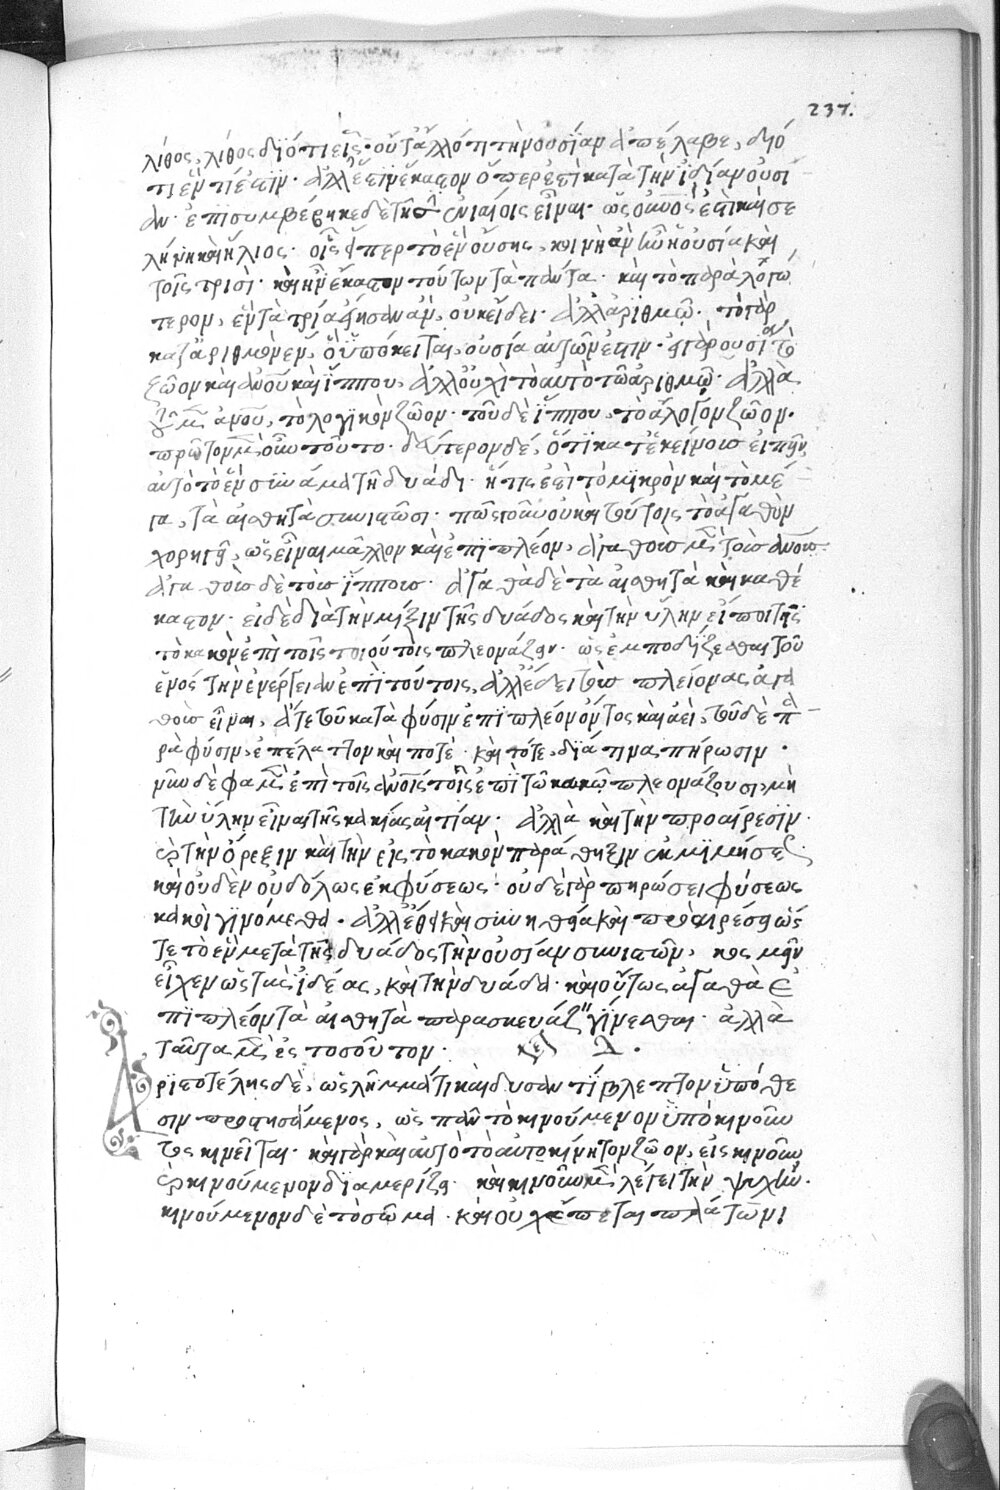 237.
λίθος, λίθος διότι εἷς· οὔτ' ἄλλό τι τὴν οὐσίαν ἀπέλαβε, διό
τι ἕν τί ἐστιν. ἀλλ' ἔστιν ἕκαστον ὅπερ ἐστὶ κατὰ τὴν ἰδίαν οὐσί
αν. ἐπισυμβέβηκε δὲ τῆ ἐνιαίοις εἶναι. ὡς οὐνός ἐστι καὶ σε
λήνη καὶ ἥλιος. οἷς περ τὸ ἓν οὔσης, καὶ μὴ ἂν ἦν ἡ οὐσία καὶ
τοῖς τρισὶ. καὶ ἦν ἕκαστον τούτων τὰ πάντα. καὶ τὸ παραλογώ
τερον, ἓν τὰ τρία ἦσαν ἂν, οὐκ εἴδει. ἀλλ' ἀριθμῷ. τὸ γὰρ
κατ' ἀριθμὸν ἓν, ὃ ὑπόκειται, οὐσία αὐτῶν ἐστιν. ἡ γὰρ οὐσία τὸ
ζῶον καὶ ἀνοῦ καὶ ἵππου, ἀλλ' οὐχὶ τὸ αὐτὸ τῶ ἀριθμῷ. ἀλλὰ
τοῦ μ ἀνου, τὸ λογικὸν ζῶον. τοῦ δὲ ἵππου, τὸ ἄλογον ζῶον.
πρῶτον μ οὖν τοῦτο. δεύτερον δέ, ὅτι κατ' ἐκείνοισ εἰπεῖν,
αὐτὸ τὸ ἓν σὺν ἅμα τῆ δυάδι. ἥτις ἐστὶ τὸ μικρὸν καὶ τὸ μέ
γα, τὰ αἰσθητὰ συνιστῶσι. πῶς τοῦ ἀνου καὶ τούτοις τὸ ἀγαθὸν
χορηγεῖ, ὡς εἶναι μᾶλλον καὶ ἐπιπλέον, ἀγαθοὺς μ τοὺσ ἀνουσ
ἀγαθοὺσ δὲ τοὺσ ἵππουσ. ἀγαθὰ δὲ τὰ αἰσθητὰ καὶ καθέ
καστον. εἰ δὲ διὰ τὴν μίξιν τῆς δυάδος καὶ τὴν ὕλην εἴποι τις
τὸ κακὸν ἐπὶ τοῖς τοιούτοις πλεονάζειν. ὡς ἐμποδίζεσθαι τοῦ
ἑνός τὴν ἐνέργειαν ἐπὶ τούτοις, ἀλλ' ἔδει τοὺσ πλείονας ἀγα
θοὺσ εἶναι, ἅτε τοῦ κατὰ φύσιν ἐπιπλέον ὄντος καὶ ἀεὶ, τοῦ δὲ πα
ρὰ φύσιν, ἐπ' ἔλαττον καὶ ποτὲ. καὶ τότε, διά τινα πήρωσιν.
νῦν δὲ φαμ ἐπὶ τοῖς ἀνοις τοῖς ἐπὶ τῶ κακῶ πλεονάζουσι, μὴ
τὴν ὕλην εἶναι τῆς κακίας αἰτίαν. ἀλλὰ καὶ τὴν προαίρεσιν.
καὶ τὴν ὄρεξιν καὶ τὴν εἰς τὸ κακὸν παράθηξιν ἐκ μιμήσεως.
καὶ οὐδὲν οὐδόλως ἐκ φύσεως. οὐδὲ γὰρ πηρώσει φύσεως
κακοὶ γινόμεθα. ἀλλ' ἔθει καὶ συνηθεία καὶ προαιρέσει ὥσ
τε τὸ ἓν μετὰ τῆς δυάδος τὴν οὐσίαν συνιστῶν,
εἶχεν ὡς τὰς ἰδέας, καὶ τὴν δυάδα. καὶ οὕτως ἀγαθὰ ἐ
πιπλέον τὰ αἰσθητὰ παρασκευάζειν γίνεσθαι. ἀλλὰ
ταῦτα μ ἐς τοσοῦτον. κεφ Δ.
Ἀριστοτέλης δὲ, ὡς λημμάτιον καὶ δυσαντίβλεπτον ὑπόθε
σιν προστησάμενος, ὡς πᾶν τὸ κινούμενον ὑπὸ κινοῦν
τος κινεῖται. καὶ γὰρ καὶ αὐτὸ τὸ αὐτοκίνητον ζῶον, εἰς κινοῦν
καὶ κινούμενον διαμερίζει. καὶ κινοῦν μ λέγει τὴν ψυχὴν.
κινούμενον δὲ τὸ σῶμα. καὶ οὐχ ἕπεται πλάτωνι